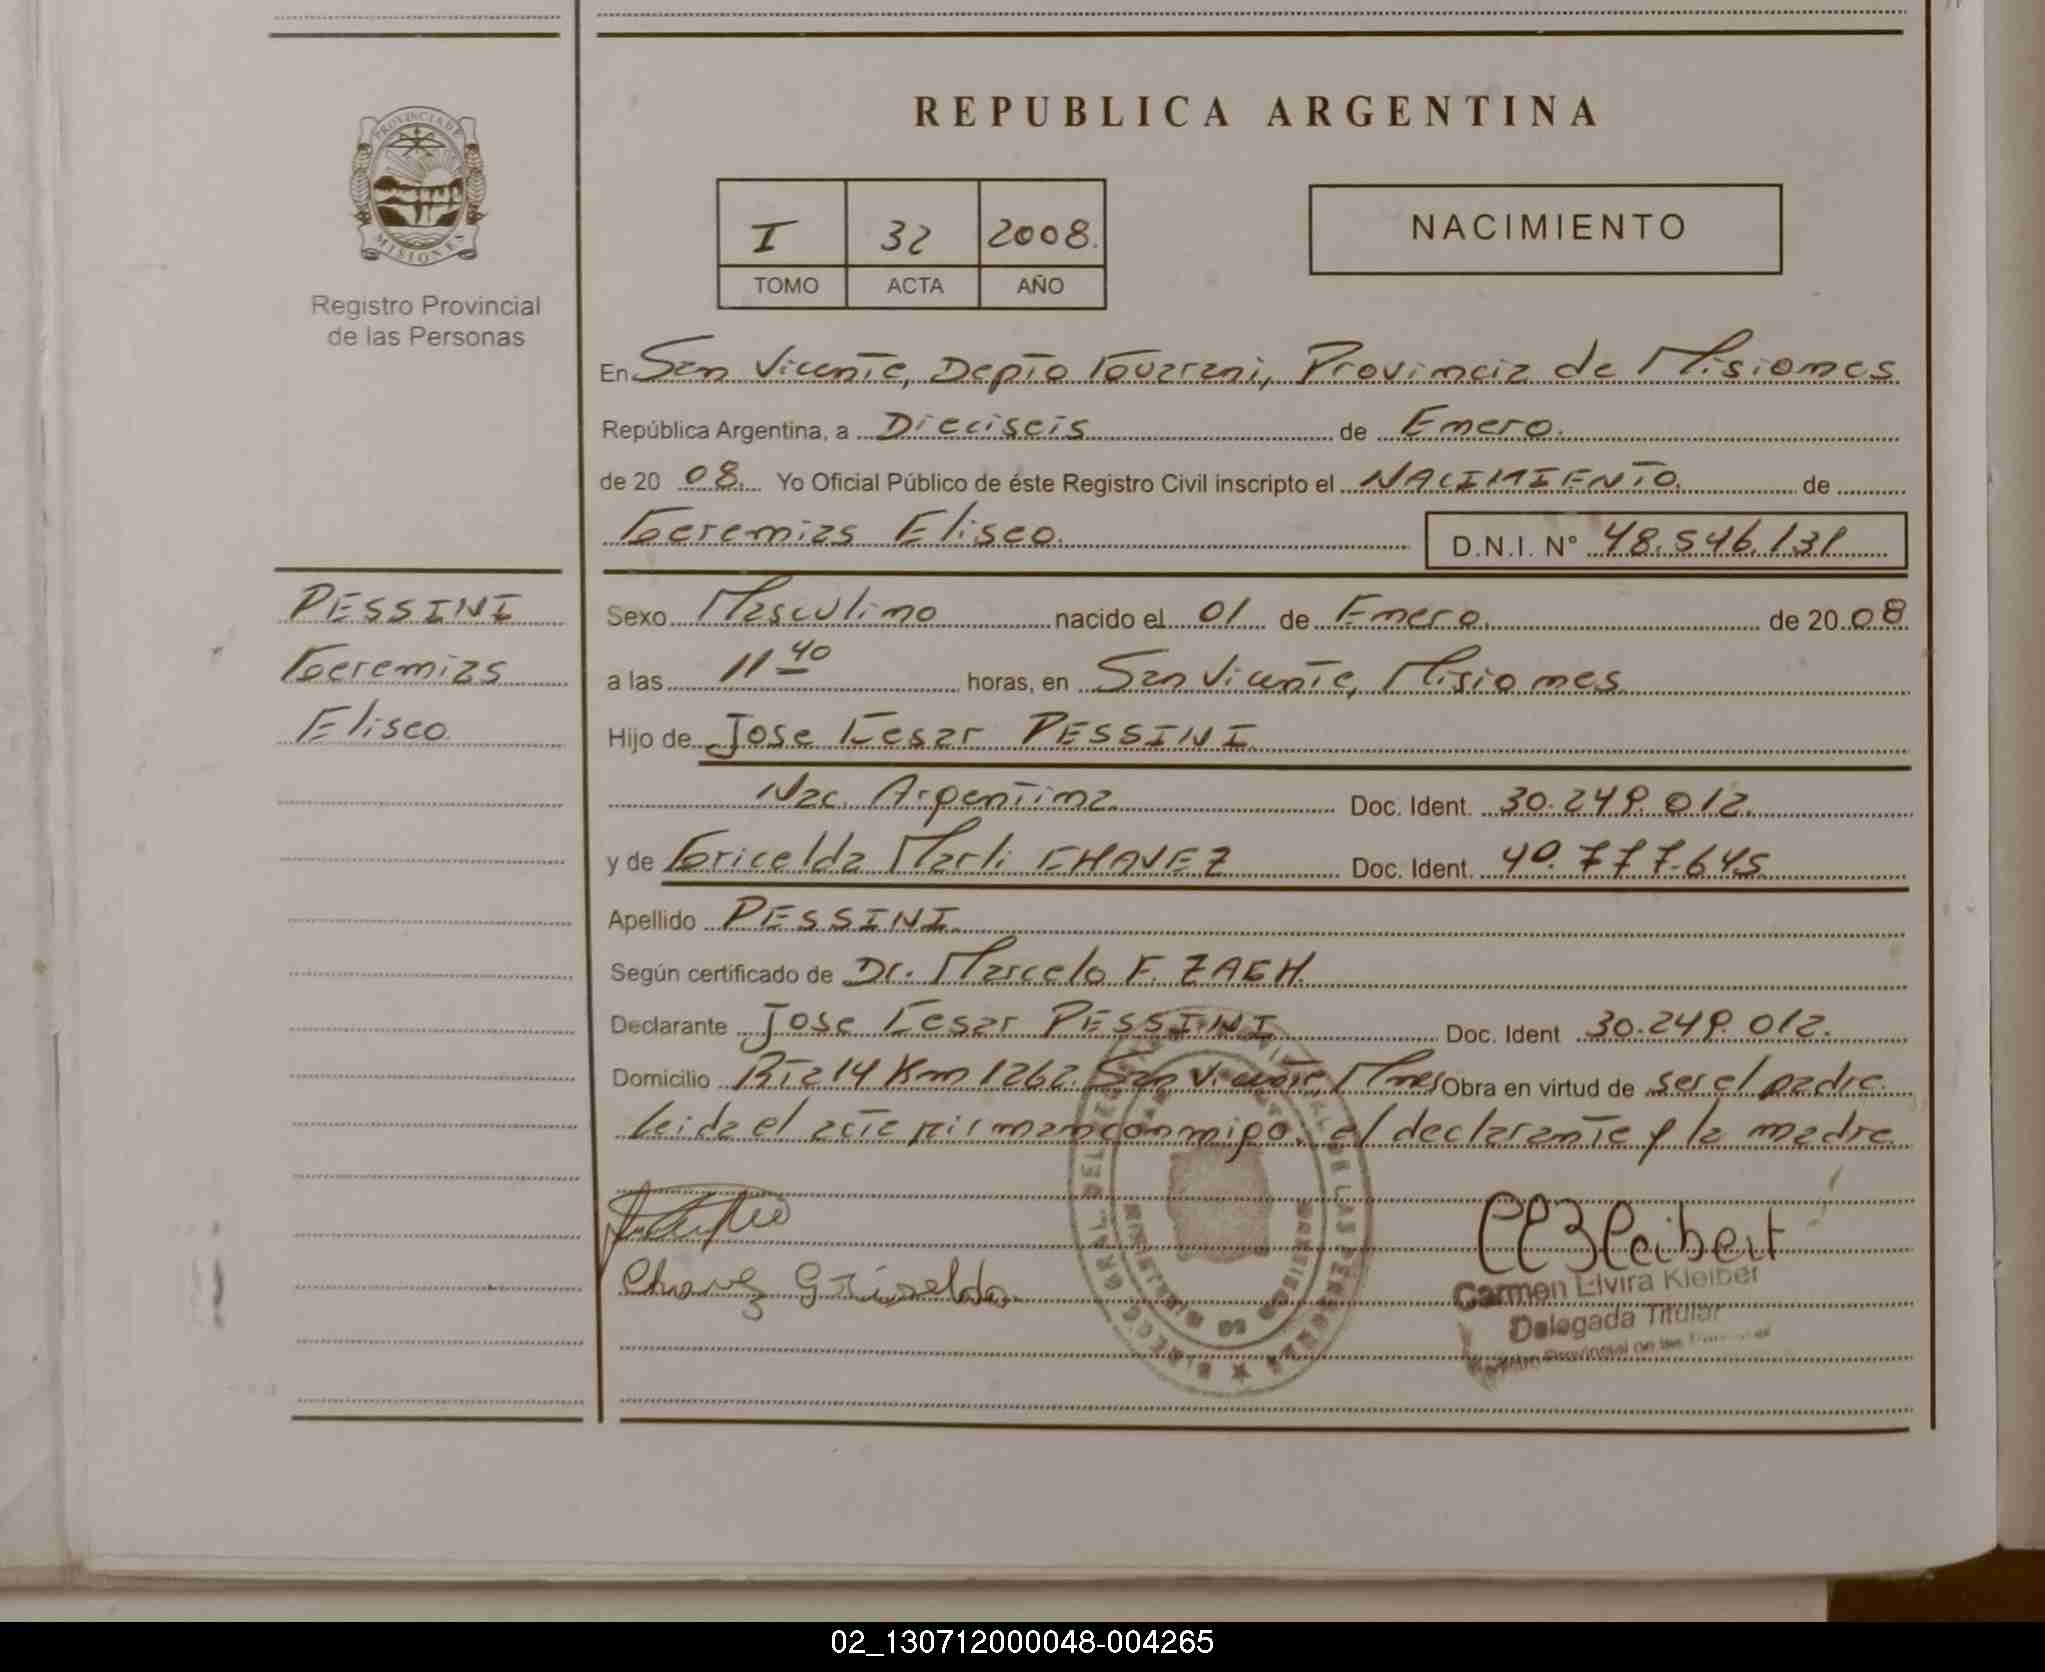 REPUBLICA ARGENTINA
PROVINCIA DE
MISIONES
Registro Provincial
de las Personas
I 32 2008.
TOMO ACTA AÑO
NACIMIENTO
En San Vicente, Depto Guarani, Provincia de Misiones
República Argentina, a Dieciseis de Enero.
de 20 08. Yo Oficial Público de éste Registro Civil inscripto el NACIMIENTO. de
Geremias Eliseo. D.N.I. N° 48.546.131
PESSINI
Geremias
Eliseo.
Sexo Masculino nacido el 01 de Enero. de 20 08.
a las 11 40 horas, en San Vicente, Misiones.
Hijo de Jose Cesar PESSINI.
Nac. Argentina Doc. Ident. 30.249.012.
y de Gricelda Marli CHAVEZ Doc. Ident. 40.777.645
Apellido PESSINI.
Según certificado de Dr. Marcelo F. ZAEH.
Declarante Jose Cesar PESSINI Doc. Ident 30.249.012.
Domicilio Rta 14 Km 1262. San Vicente, Mnes Obra en virtud de ser el padre.
leida el acta firman conmigo, el declarante y la madre
Chavez Griselda
CEKleibert
Carmen Elvira Kleiber
Delegada Titular
02_130712000048-004265